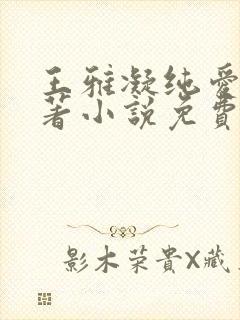 王雅凝纯愛
著小說免費
影木荣貴X藏